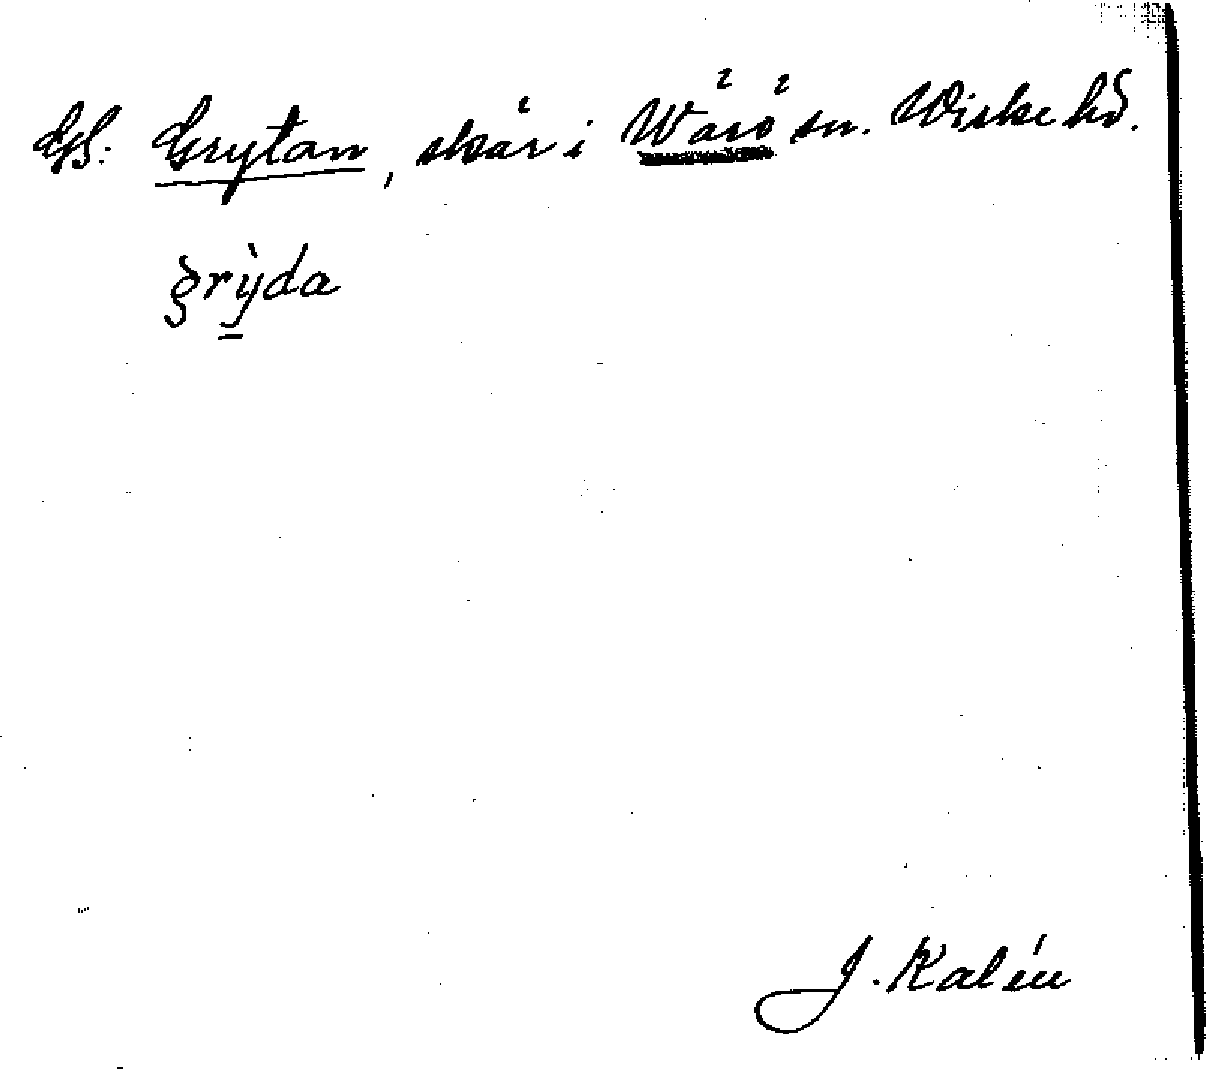 GS: Grytan, skär i Wärö sn. Wiske hd.
grỳda
J. Kalén